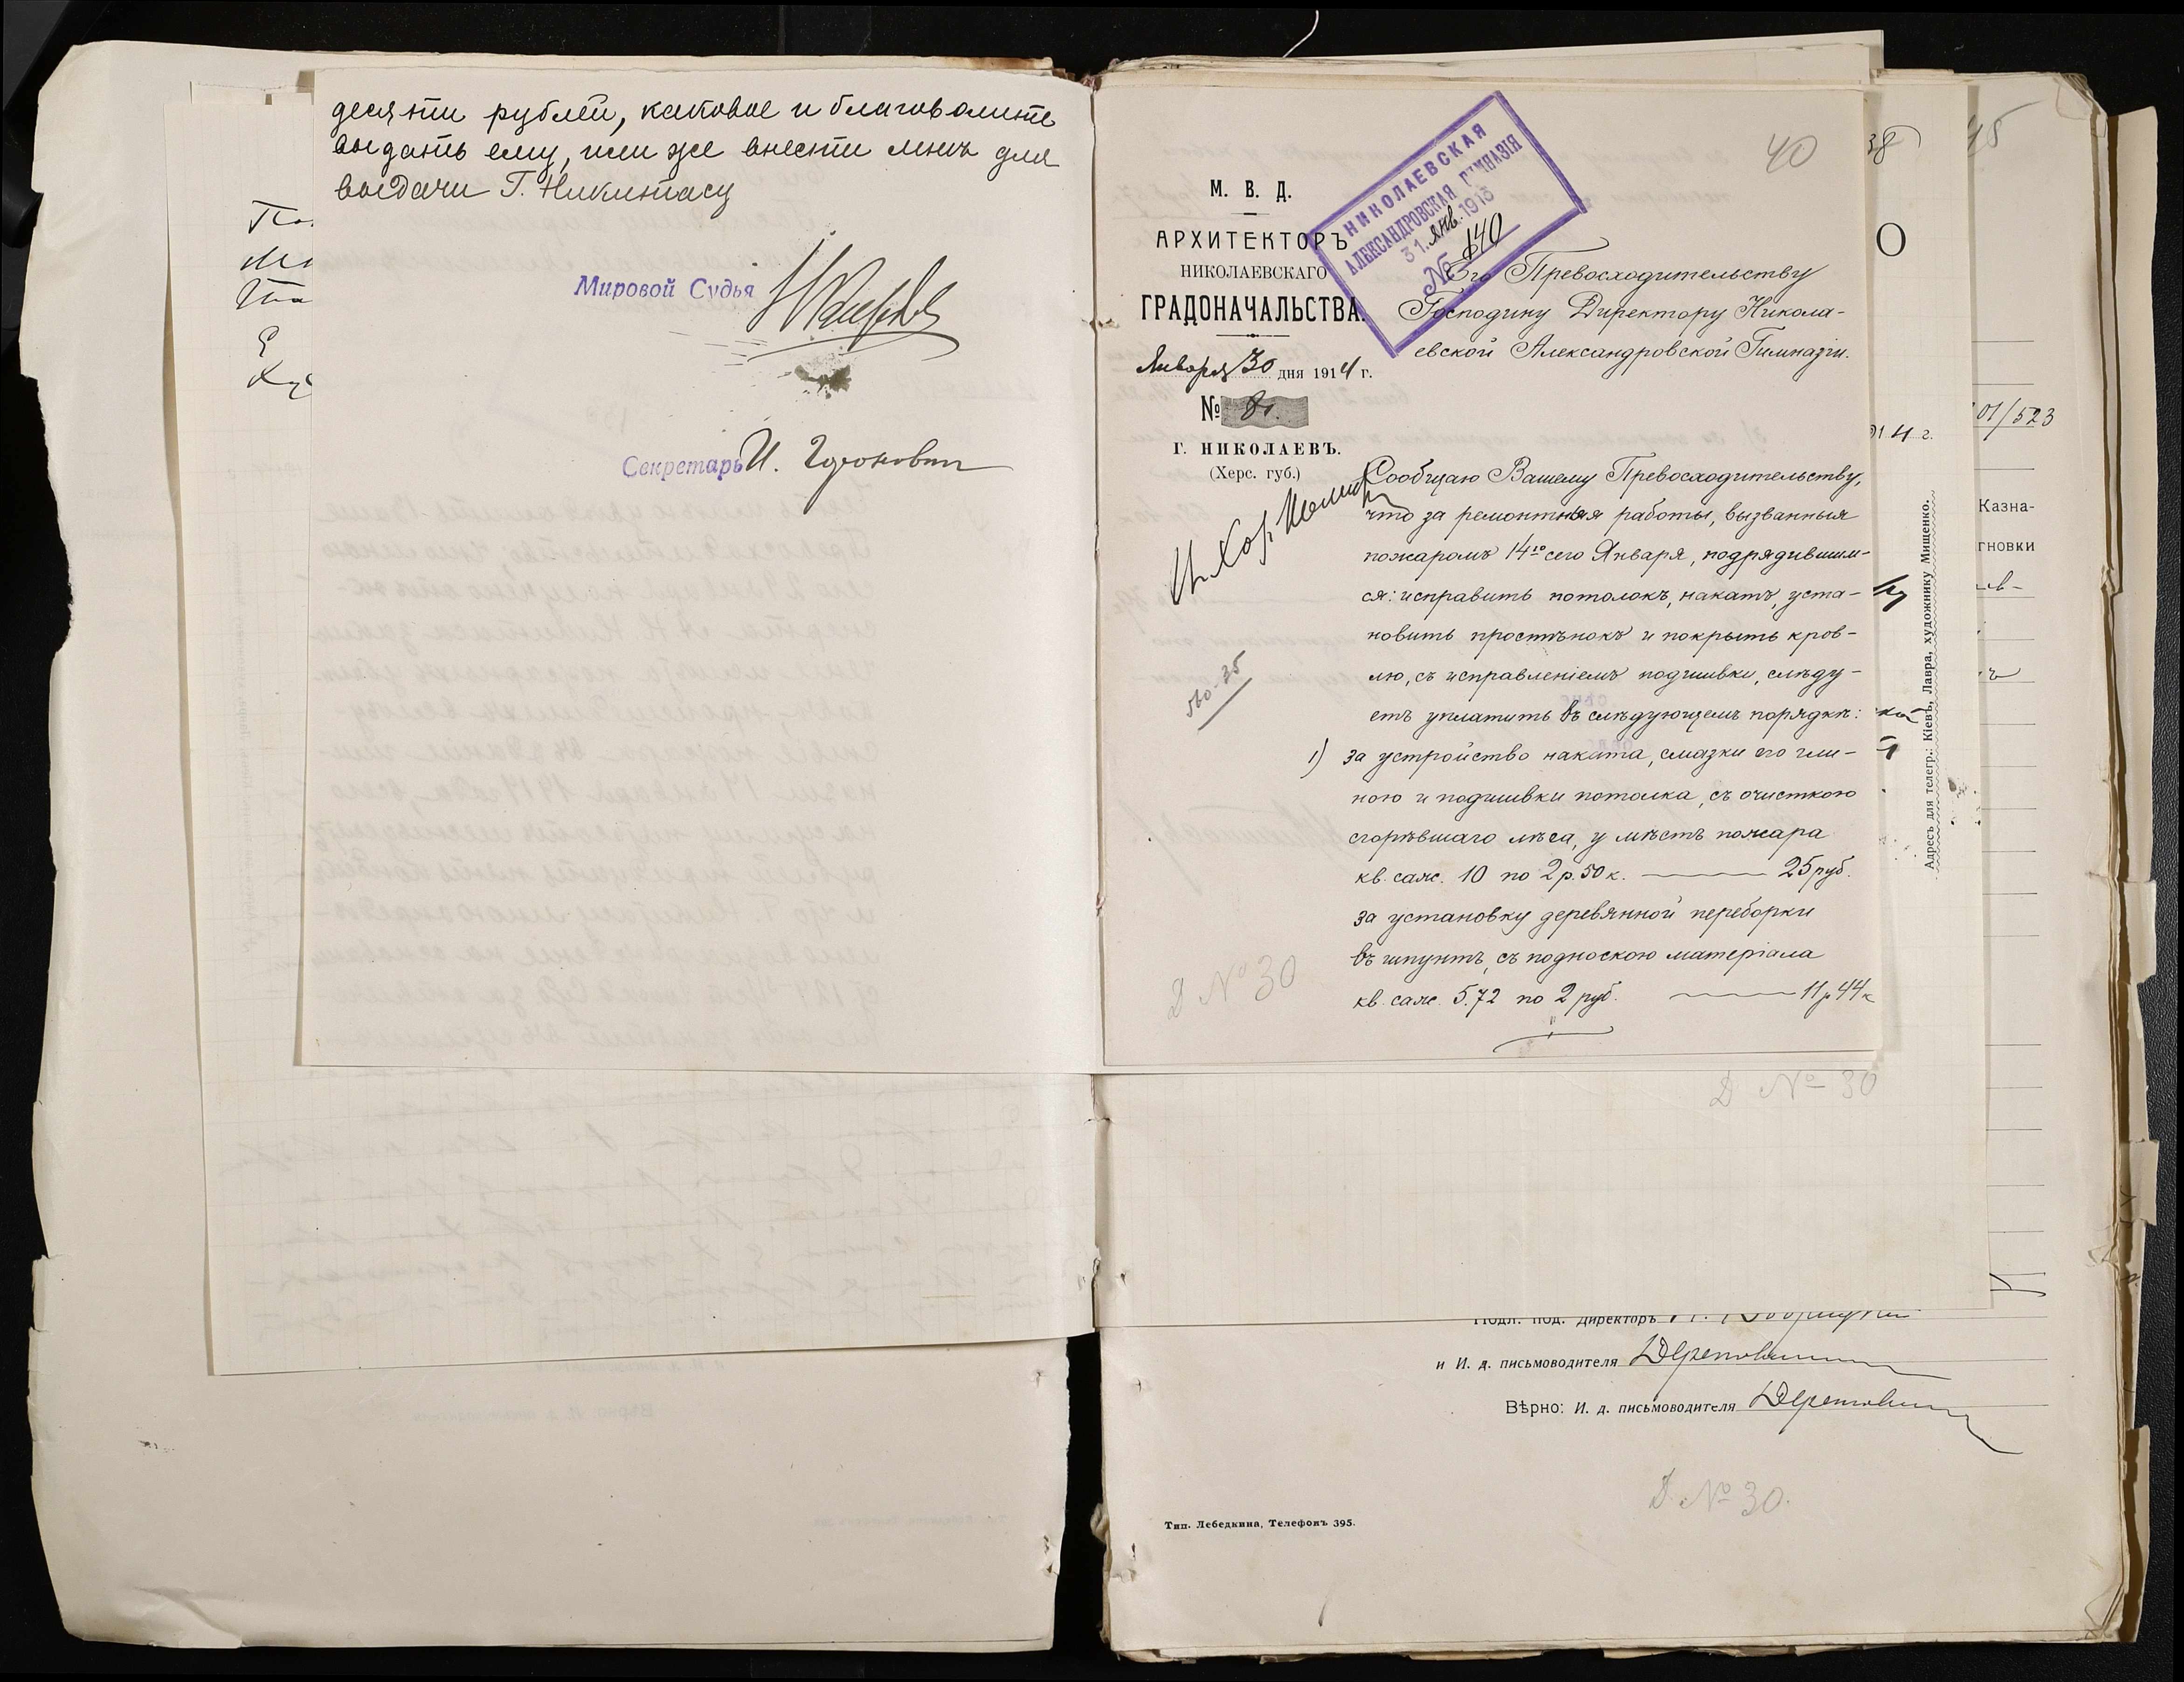 десяти рублей, каковое и благоволите
выдать ему, или же внести мнѣ для
выдачи Г. Никитасу
Мировой Судья
Секретарь И.
40
НИКОЛАЕВСКАЯ
АЛЕКСАНДРОВСКАЯ ГИМНАЗІЯ
31. янв. 1913
№ 140
М. В. Д.
АРХИТЕКТОРЪ
НИКОЛАЕВСКАГО
ГРАДОНАЧАЛЬСТВА.
Января 30 дня 1914 г.
№ 81.
Г. НИКОЛАЕВЪ.
(Херс. губ.)
Его Превосходительству
Господину Директору Никола-
евской Александровской Гимназіи.
Сообщаю Вашему Превосходительству,
что за ремонтныя работы, вызванныя
пожаромъ 14го сего Января, подрядившим-
ся: исправить потолокъ, накатъ, уста-
новить простѣнокъ и покрыть кров-
лю, съ исправленіемъ подшивки, слѣду-
етъ уплатить въ слѣдующемъ порядкѣ:
1) за устройство наката, смазки его гли-
ною и подшивки потолка, съ очисткою
сгорѣвшаго лѣса, у мѣстъ пожара
кв. саж. 10 по 2 р. 50 к. — 25 руб.
за установку деревянной переборки
въ шпунтъ, съ подноскою матеріала
кв. саж. 5.72 по 2 руб. — 11 р 44 к
Д № 30
38
45
О
01/523
914 г.
Казна-
тновки
Адресъ для телегр.: Кіевъ, Лавра, художнику Мищенко.
Д № 30
Подл. под. Директоръ
и И. д. письмоводителя
Вѣрно: И. д. письмоводителя
Д. № 30.
Тип. Лебедкина, Телефонъ 395.